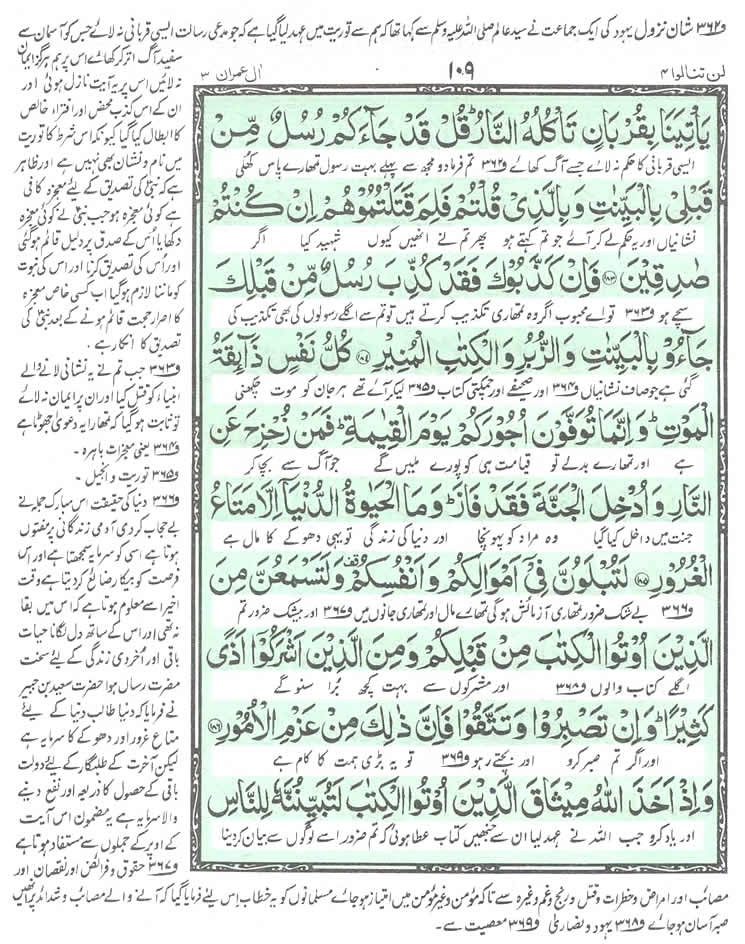 ف۳۶۲ شان نزول یہود کی ایک جماعت نے سید عالم صلی اللہ علیہ وسلم سے کہا تھا کہ ہم سے توریت میں عہد لیا گیا ہے کہ جو مدعی رسالت ایسی قربانی نہ لائے جس کو آسمان سے
لن تنالوا ۴
۱۰۹
اٰل عمرٰن ۳
سفید آگ اتر کر کھائے اس پر ہم ہرگز ایمان
نہ لائیں اس پر یہ آیت نازل ہوئی اور
ان کے اس کذب محض اور افتراء خالص
کا ابطال کیا گیا کیونکہ اس شرط کا توریت
میں نام و نشان بھی نہیں ہے اور ظاہر
ہے کہ نبی کی تصدیق کے لیے معجزہ کافی
ہے کوئی معجزہ ہو جب نبی نے کوئی معجزہ
دکھایا اس کے صدق پر دلیل قائم ہوگئی
اور اس کی تصدیق کرنا اور اس کی نبوت
کو ماننا لازم ہوگیا اب کسی خاص معجزہ
کا اصرار حجت قائم ہونے کے بعد نبی کی
تصدیق کا انکار ہے ۔
ف۳۶۳ جب تم نے یہ نشانی لانے والے
انبیاء کو قتل کیا اور ان پر ایمان نہ لائے
تو ثابت ہوگیا کہ تمھارا یہ دعویٰ جھوٹا ہے
ف۳۶۴ یعنی معجزات باہرہ ۔
ف۳۶۵ توریت و انجیل ۔
ف۳۶۶ دنیا کی حقیقت اس مبارک جملہ نے
بے حجاب کردی آدمی زندگانی پر مفتون
ہوتا ہے اسی کو سرمایہ سمجھتا ہے اور اس
فرصت کو بیکار ضائع کردیتا ہے وقت
اخیر اسے معلوم ہوتا ہے کہ اس میں بقا
نہ تھی اور اس کے ساتھ دل لگانا حیات
باقی اور اُخروی زندگی کے لیے سخت
مضرت رساں ہوا حضرت سعید بن جبیر
نے فرمایا کہ دنیا طالب دنیا کے لیے
متاع غرور اور دھوکے کا سرمایہ ہے
لیکن آخرت کے طلبگار کے لیے دولت
باقی کے حصول کا ذریعہ اور نفع دینے
والا سرمایہ ہے یہ مضمون اس آیت
کے اوپر کے جملوں سے مستفاد ہوتا ہے
ف۳۶۷ حقوق و فرائض اور نقصان اور
یَاْتِیَنَا بِقُرْبَانٍ تَاْکُلُہُ النَّارُ ؕ قُلْ قَدْ جَآءَکُمْ رُسُلٌ مِّنْ
ایسی قربانی کا حکم نہ لائے جسے آگ کھائے ف۳۶۲ تم فرما دو مجھ سے پہلے بہت رسول تمھارے پاس کھلی
قَبْلِیْ بِالْبَیِّنٰتِ وَ بِالَّذِیْ قُلْتُمْ فَلِمَ قَتَلْتُمُوْھُمْ اِنْ کُنْتُمْ
نشانیاں اور یہ حکم لے کر آئے جو تم کہتے ہو پھر تم نے انھیں کیوں شہید کیا اگر
صٰدِقِیْنَ ﴿۱۸۳﴾ فَاِنْ کَذَّبُوْکَ فَقَدْ کُذِّبَ رُسُلٌ مِّنْ قَبْلِکَ
سچے ہو ف۳۶۳ تو اے محبوب اگر وہ تمھاری تکذیب کرتے ہیں تو تم سے اگلے رسولوں کی بھی تکذیب کی
جَآءُوْ بِالْبَیِّنٰتِ وَ الزُّبُرِ وَ الْکِتٰبِ الْمُنِیْرِ ﴿۱۸۴﴾ کُلُّ نَفْسٍ ذَآئِقَۃُ
گئی ہے جو صاف نشانیاں ف۳۶۴ اور صحیفے اور چمکتی کتاب ف۳۶۵ لیکر آئے تھے ہر جان کو موت چکھنی
الْمَوْتِ ؕ وَ اِنَّمَا تُوَفَّوْنَ اُجُوْرَکُمْ یَوْمَ الْقِیٰمَۃِ ؕ فَمَنْ زُحْزِحَ عَنِ
ہے اور تمھارے بدلے تو قیامت ہی کو پورے ملیں گے جو آگ سے بچا کر
النَّارِ وَ اُدْخِلَ الْجَنَّۃَ فَقَدْ فَازَ ؕ وَ مَا الْحَیٰوۃُ الدُّنْیَاۤ اِلَّا مَتَاعُ
جنت میں داخل کیا گیا وہ مراد کو پہونچا اور دنیا کی زندگی تو یہی دھوکے کا مال ہے
الْغُرُوْرِ ﴿۱۸۵﴾ لَتُبْلَوُنَّ فِیْۤ اَمْوَالِکُمْ وَ اَنْفُسِکُمْ ۟ وَ لَتَسْمَعُنَّ مِنَ
ف۳۶۶ بے شک ضرور تمھاری آزمائش ہوگی تمھارے مال اور تمھاری جانوں میں ف۳۶۷ اور بیشک ضرور تم
الَّذِیْنَ اُوْتُوا الْکِتٰبَ مِنْ قَبْلِکُمْ وَ مِنَ الَّذِیْنَ اَشْرَکُوْۤا اَذًی
اگلے کتاب والوں ف۳۶۸ اور مشرکوں سے بہت کچھ بُرا سنو گے
کَثِیْرًا ؕ وَ اِنْ تَصْبِرُوْا وَ تَتَّقُوْا فَاِنَّ ذٰلِکَ مِنْ عَزْمِ الْاُمُوْرِ ﴿۱۸۶﴾
اور اگر تم صبر کرو اور بچتے رہو ف۳۶۹ تو یہ بڑی ہمت کا کام ہے
وَ اِذْ اَخَذَ اللّٰہُ مِیْثَاقَ الَّذِیْنَ اُوْتُوا الْکِتٰبَ لَتُبَیِّنُنَّہٗ لِلنَّاسِ
اور یاد کرو جب اللہ نے عہد لیا ان سے جنھیں کتاب عطا ہوئی کہ تم ضرور اسے لوگوں سے بیان کردینا
مصائب اور امراض و خطرات و قتل و رنج و غم وغیرہ سے تاکہ مؤمن و غیر مؤمن میں امتیاز ہوجائے مسلمانوں کو یہ خطاب اس لیے فرمایا گیا کہ آنے والے مصائب و شدائد پر انھیں
صبر آسان ہوجائے ف۳۶۸ یہود و نصاریٰ ف۳۶۹ معصیت سے ۔